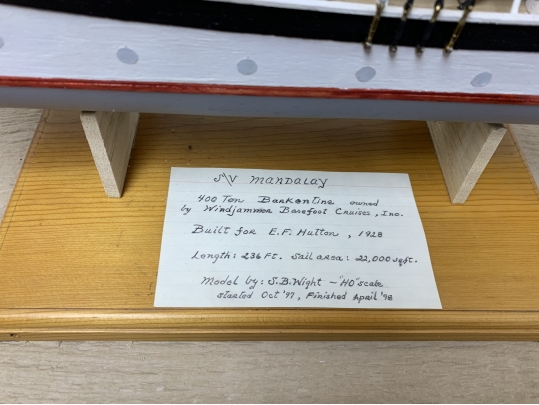 S/V MANDALAY
400 Ton Barkentine owned
by Windjammer Barefoot Cruises, Inc.
Built for E.F. Hutton, 1928
Length: 236 Ft. Sail area: 22,000 sq.ft.
Model by: S.B. Wight - "HO" scale
started Oct '97, Finished April '98